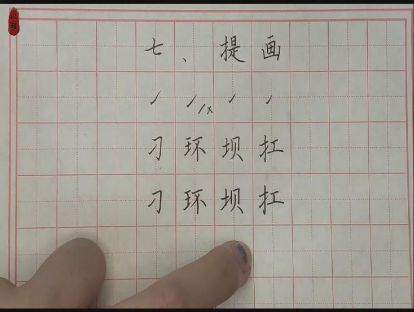 七、提画
刁环坝扛
刁环坝扛